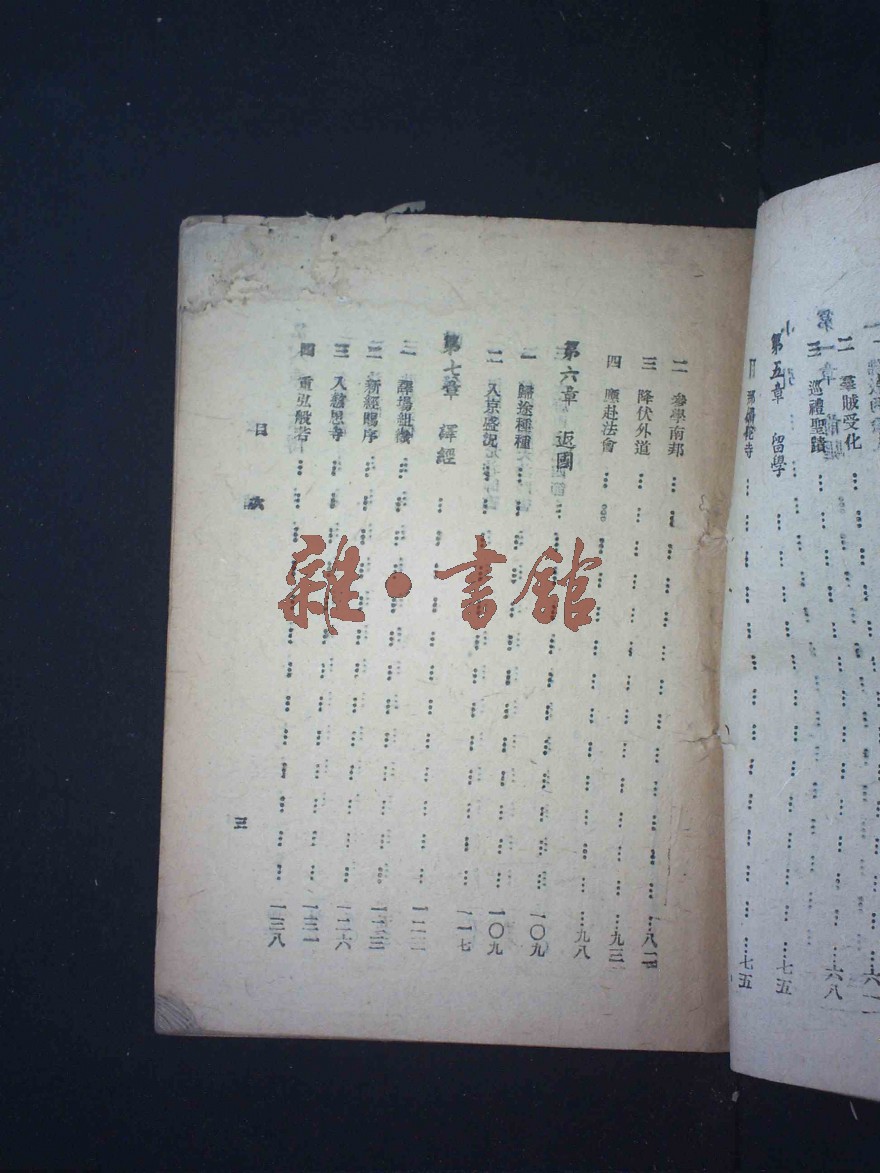 二 羣賊受化
三 巡禮聖蹟 六八
第五章 留學 七五
那爛陀寺 七五
二 參學南邦 八二
三 降伏外道 九三
四 應赴法會 九八
第六章 返國 一〇九
一 歸途種種 一〇九
二 入京盛況 一一七
第七章 譯經 一二二
一 譯場組織
二 新經賜序 一二六
三 入慈恩寺 一三一
四 重弘般若 一三八
目次
三
雜·書館